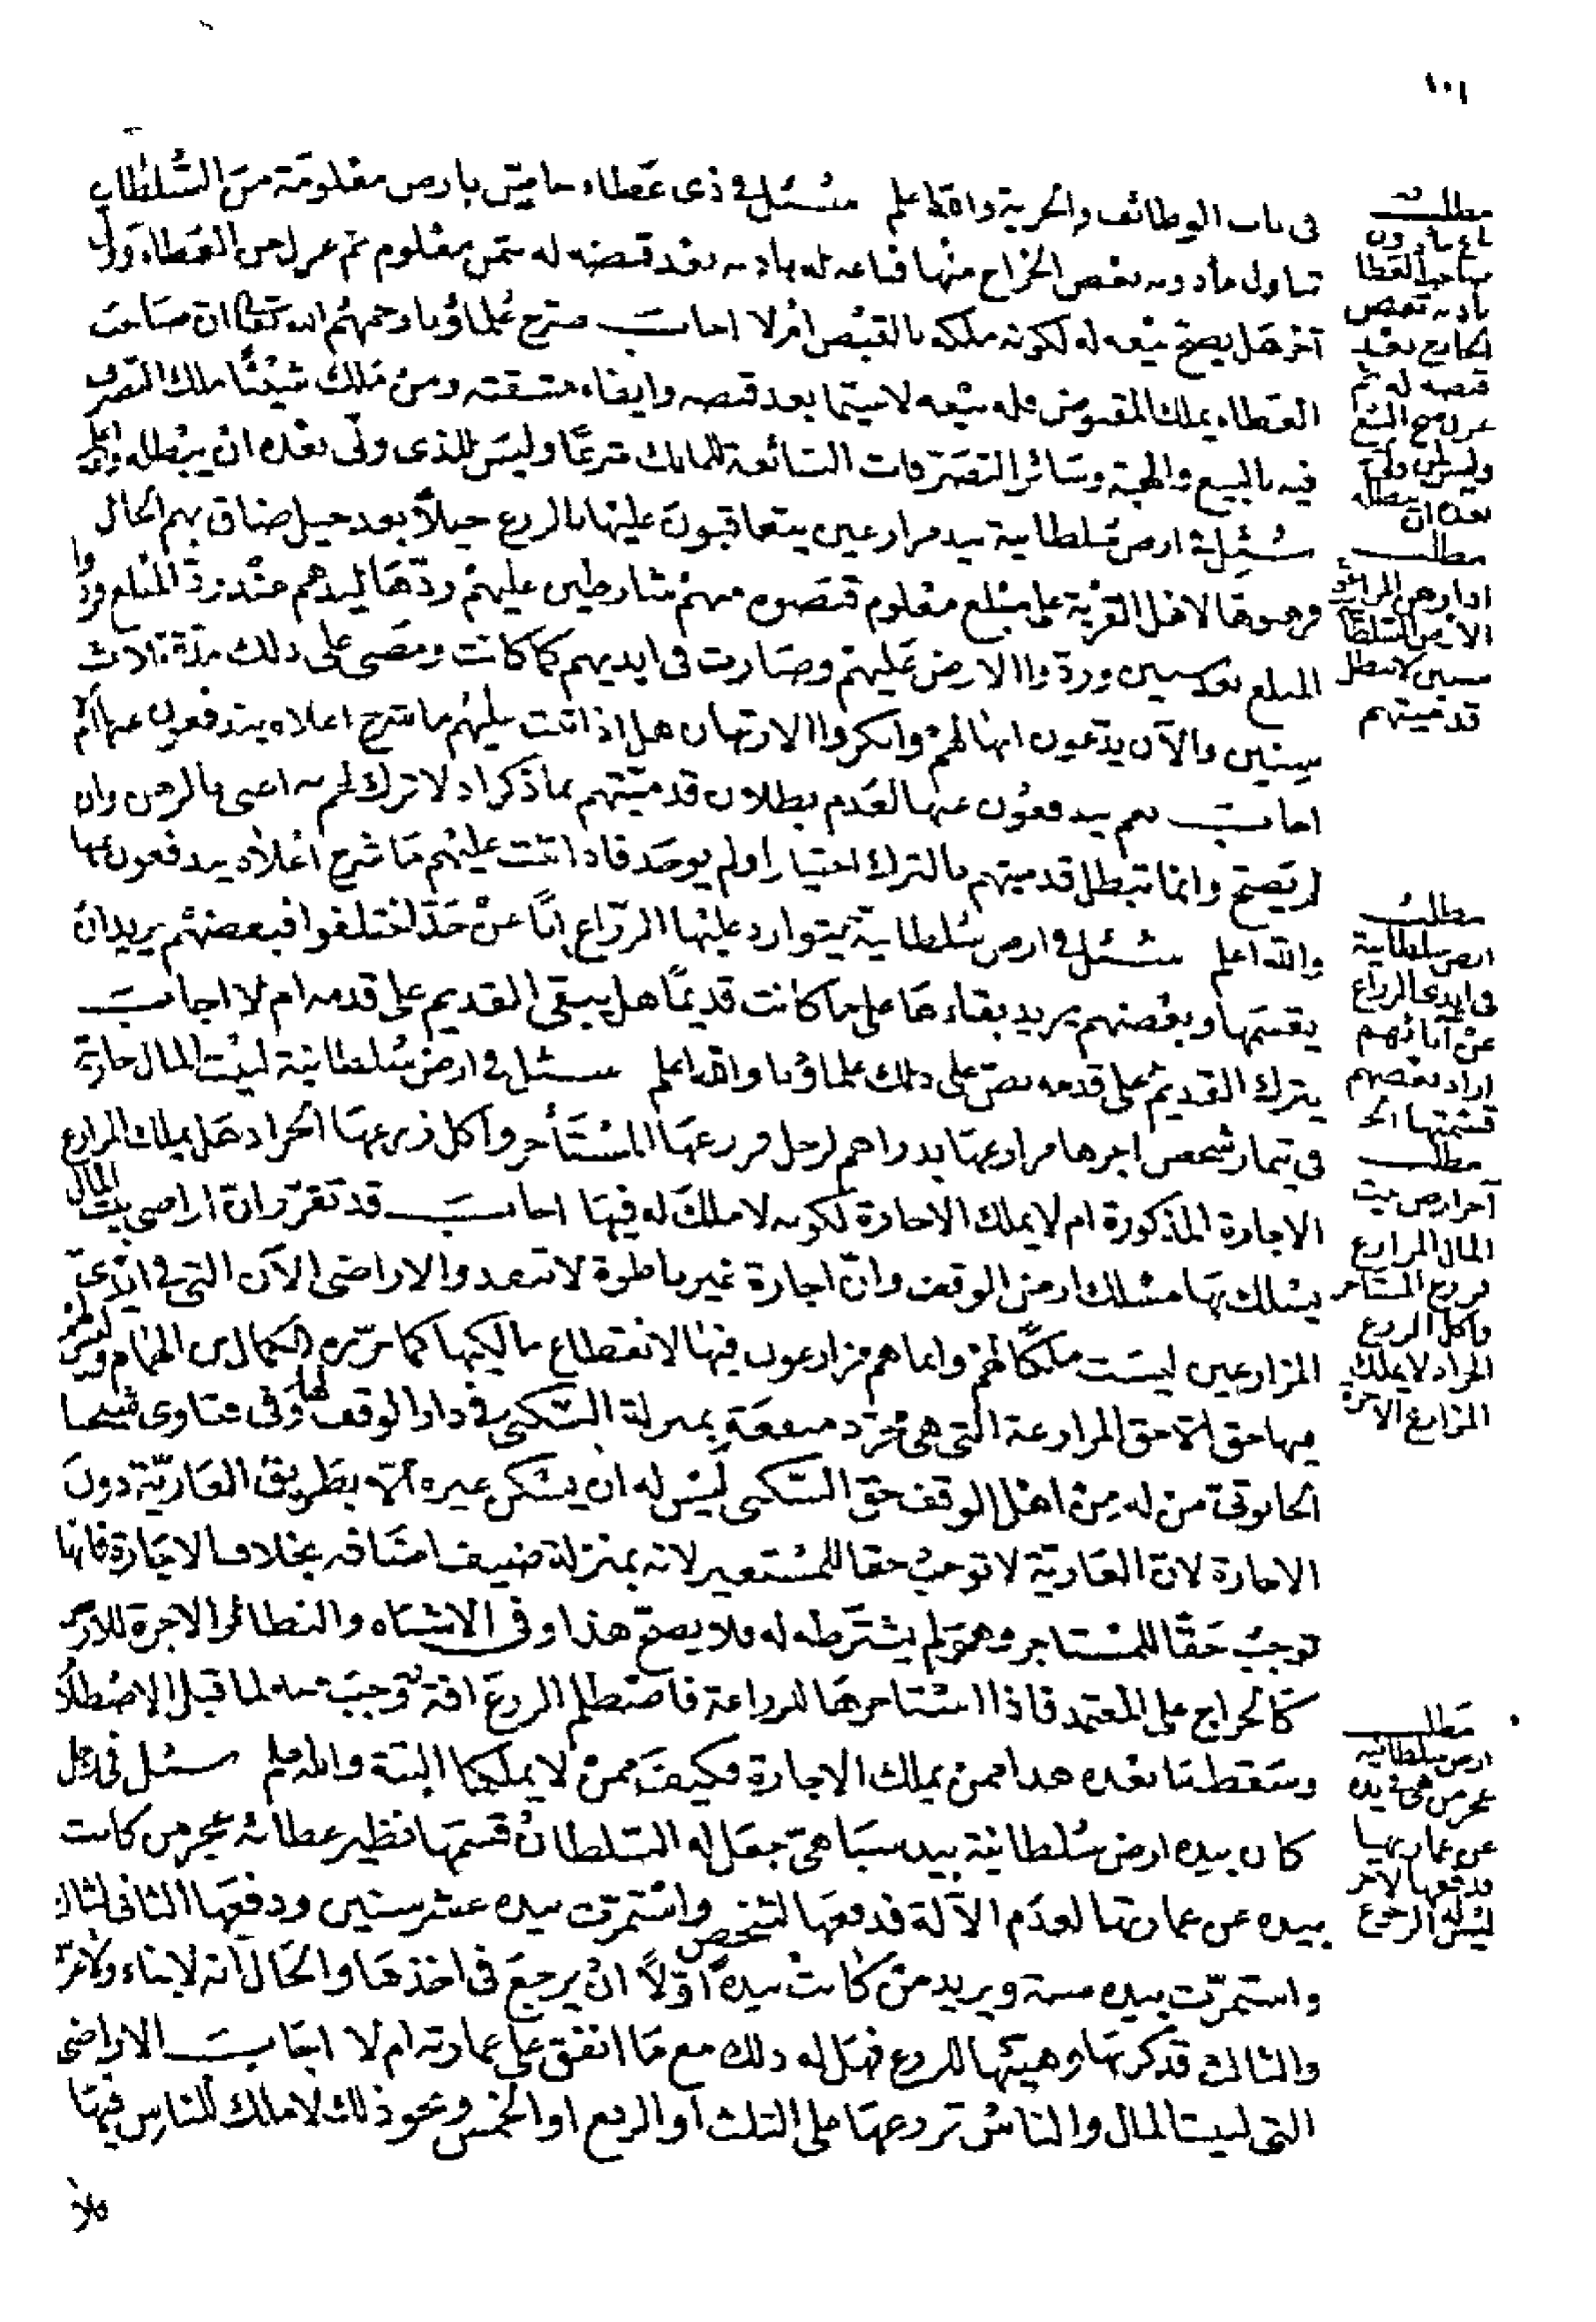 ١٠١
فى باب الوظائف والجزية والله اعلم سئل فى ذى عطاء خاص بارض معلومة من السلطان
تناول مأذونه بعض الخراج منها فباعه له باذنه بعد قبضه له بثمن معلوم ثم عزل من العطاء وولى
آخر هل يصح بيعه له لكونه ملكه بالقبض ام لا اجاب صرح علماؤنا رحمهم الله تعالى ان صاحب
العطاء يملك المقبوض فله بيعه لا سيما بعد قبضه وايفاء مشقته ومن ملك شيئًا ملك التصرف
فيه بالبيع والهبة وسائر التصرفات السائغة للمالك شرعًا وليس للذى ولى بعده ان يبطله والله اعلم
سئل فى ارض سلطانية بيد مزارعين يتعاقبون عليها بالزرع جيلاً بعد جيل ضاق بهم الحال
فرهنوها لاهل القرية على مبلغ معلوم قبضوه منهم مشارطين عليهم ردها ليدهم عند رد المبلغ وردوا
المبلغ بعد سنين وردوا الارض عليهم وصارت فى ايديهم كما كانت ومضى على ذلك مدة ثلاث
سنين والآن يدعون انها لهم وانكروا الارتهان هل اذا اثبت عليهم ما شرح اعلاه يندفعون عنها ام لا
اجاب نعم يندفعون عنها لعدم بطلان قدميتهم بما ذكر اذ لا ترك لهم به اعنى بالرهن وان
لم يصح وانما تبطل قدميتهم بالترك اختيارا ولم يوجد فاذا اثبت عليهم ما شرح اعلاه يندفعون عنها
والله اعلم سئل فى ارض سلطانية يتوارد عليها الزراع ابًا عن جد اختلفوا فبعضهم يريد ان
يقسمها وبعضهم يريد بقاءها على ما كانت قديمًا هل يبقى القديم على قدمه ام لا اجاب
يترك القديم على قدمه نص على ذلك علماؤنا والله اعلم سئل فى ارض سلطانية لبيت المال جارية
فى تيمار شخص اجرها مزارعها بدراهم لرجل فزرعها المستأجر واكل زرعها الجراد هل يملك المزارع
الاجارة المذكورة ام لا يملك الاجارة لكونه لا ملك له فيها اجاب قد تقرر ان اراضى بيت المال
يسلك بها مسلك ارض الوقف وان اجارة غير ناظره لا تنعقد والاراضى الآن التى فى ايدى
المزارعين ليست ملكًا لهم وانما هم مزارعون فيها لانقطاع مالكيها كما حرره الكمال بن الهمام وليس لهم
فيها حق الا حق المزارعة التى هى مجرد منفعة بمنزلة السكنى فى دار الوقف لاهله وفى فتاوى شيخنا
الحانوتى من له من اهل الوقف حق السكنى ليس له ان يسكن غيره الا بطريق العارية دون
الاجارة لان العارية لا توجب حقا للمستعير لانه بمنزلة ضيف اضافه بخلاف الاجارة فانها
توجب حقًا للمستاجر وهو لم يشترطه له فلا يصح هذا وفى الاشباه والنظائر الاجرة للارض
كالخراج على المعتمد فاذا استاجرها للزراعة فاصطلم الزرع افة وجب منه لما قبل الاصطلام
وسقط ما بعده هذا ممن يملك الاجارة فكيف ممن لا يملكها البتة والله اعلم سئل فى رجل
كان بيده ارض سلطانية بيد سباهى جعل له السلطان قسمها نظير عطائه عجز من كانت
بيده عن عمارتها لعدم الآلة فدفعها لشخص واستمرت بيده عشر سنين ودفعها الثانى لثالث
واستمرت بيده سنة ويريد من كانت بيده اولاً ان يرجع فى اخذها والحال انه لا بناء ولا غرس
والثالث قد كربها وهيئها للزرع فهل له ذلك مع ما انفق على عمارته ام لا اجاب الاراضى
التى لبيت المال والناس تزرعها على الثلث او الربع او الخمس ونحو ذلك لا ملك للناس فيها
فلا
مطلب
باع مأذون
صاحب العطا
باذنه بعض
الخارج بعد
قبضه له ثم
عزل صح البيع
وليس لمن ولى
بعده ان يبطله
مطلب
اذا رهن المزارعون
الارض السلطانية
سنين لا تبطل
قدميتهم
مطلب
ارض سلطانية
فى ايدى الزراع
عن آبائهم
اراد بعضهم
قسمتها الخ
مطلب
آجر ارض بيت
المال المزارع
فزرع المستاجر
واكل الزرع
الجراد لا يملك
المزارع الاجرة
مطلب
ارض سلطانية
عجز من هى بيده
عن عمارتها
ودفعها لآخر
ليس له الرجوع